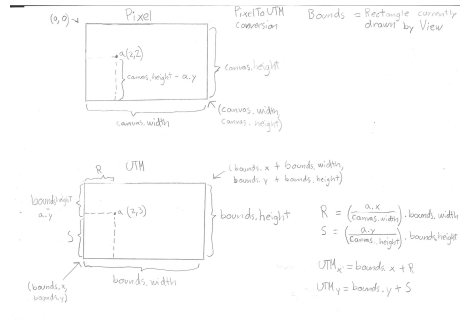 Pixel
PixelToUTM
Conversion
Bounds = Rectangle currently
drawn by View
(0,0)
a(2,2)
canvas.height - a.y
canvas.height
canvas.width
(canvas.width
canvas.height)
UTM
R
(bounds.x + bounds.width,
bounds.y + bounds.height)
bounds.height
a.y
a(2,3)
S
bounds.height
bounds.width
(bounds.x,
bounds.y)
R = (a.x / canvas.width) · bounds.width
S = (a.y / canvas.height) · bounds.height
UTMx = bounds.x + R
UTMy = bounds.y + S